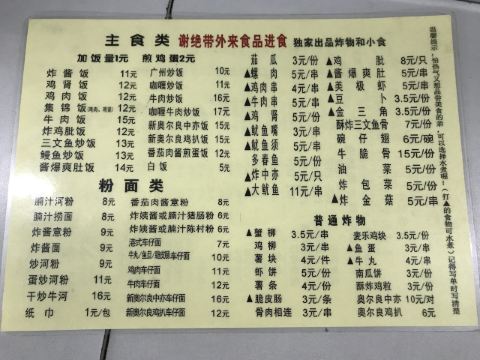 主食类 谢绝带外来食品进食 独家出品炸物和小食
加饭量1元 煎鸡蛋2元
炸酱饭 11元
鸡肾饭 12元
鸡肉饭 12元
集锦饭 12元
牛肉饭 15元
炸鸡肶饭 12元
三文鱼炒饭 14元
鳗鱼炒饭 13元
酱爆爽肚饭 15元
广州炒饭 10元
咖喱炒饭 11元
牛肉炒饭 16元
咖喱牛肉炒饭 17元
新奥尔良中亦饭 15元
新奥尔良鸡扒饭 15元
番茄肉酱蛋饭 12元
白饭 5元
粉面类
腩汁河粉 8元
腩汁捞面 8元
炸酱意粉 9元
炸酱面 9元
炒河粉 9元
蛋炒河粉 11元
干炒牛河 16元
纸巾 1元/包
番茄肉酱意粉 8元
炸姨酱或腩汁猪肠粉 6元
炸姨酱或腩汁陈村粉 6元
港式车仔面
鸡肉车仔面 11元
牛肉车仔面 12元
新奥尔良中亦车仔面 16元
新奥尔良鸡扒车仔面 16元
茄瓜 3元/份
▲螺肉 5元/串
▲鸡肉串 4元/串
▲鸡肾 5元/串
▲鱿鱼嘴 3元/串
▲鱿鱼须 5元/份
多春鱼 5元/份
▲炸中亦 5元/只
▲大鱿鱼 5元/串
▲鸡肶 8元/只
▲酱爆爽肚 5元/串
▲美极虾 5元/串
▲豆卜 3.5元/份
▲金三角 3.5元/份
酥炸三文鱼骨 7元/份
碗仔翅 6元/碗
牛脆骨 15元/份
油菜 5元/份
炸包菜 5元/份
炸金菇 5元/份
普通炸物
▲蟹柳 3.5元/串
鸡柳 4元/串
薯块 4元/件
虾饼 5元/份
薯条 4元/份
▲脆皮肠 3元/条
骨肉相连 4元/串
麦乐鸡块 3.5元/份
▲鱼蛋 3元/串
▲牛丸 4元/串
南瓜饼 3元/份
酥炸鸡粒 3元/份
奥尔良中亦 10元/对
奥尔良鸡扒 6元